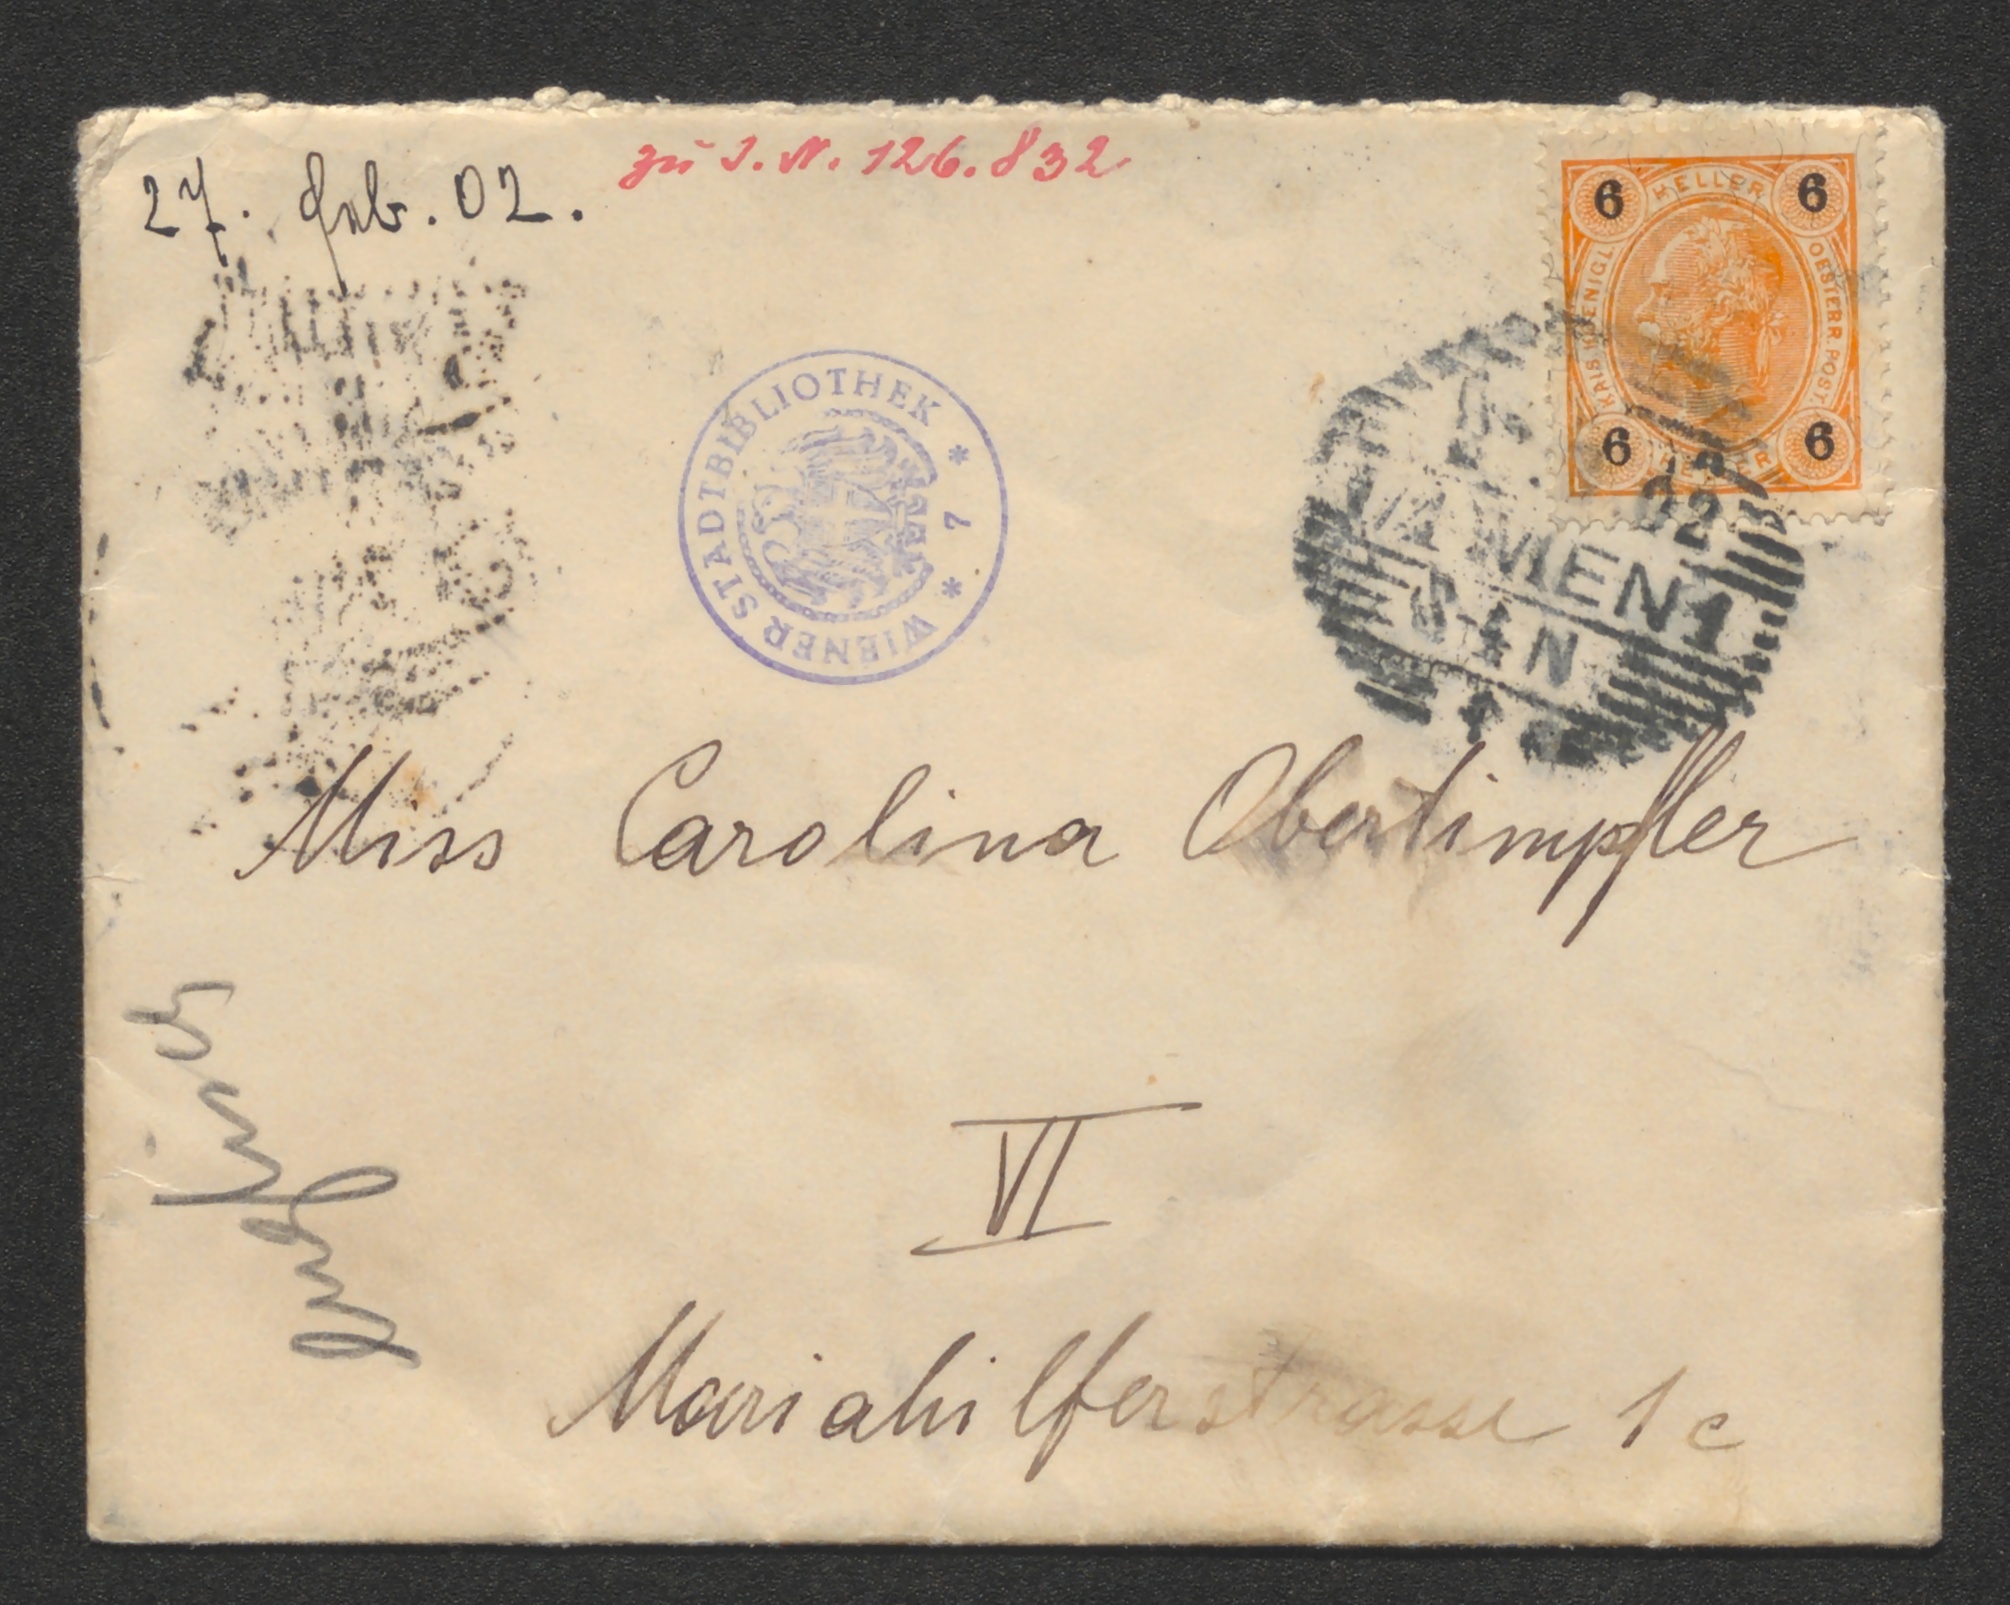 27. Feb. 02.
zu I.N. 126.832
6 HELLER 6
KAIS. KOENIGL. OESTERR. POST.
6 HELLER 6
WIENER STADTBIBLIOTHEK * 7 *
02
WIEN 1
Miss Carolina Obertimpfler
VI
Mariahilferstrasse 1c